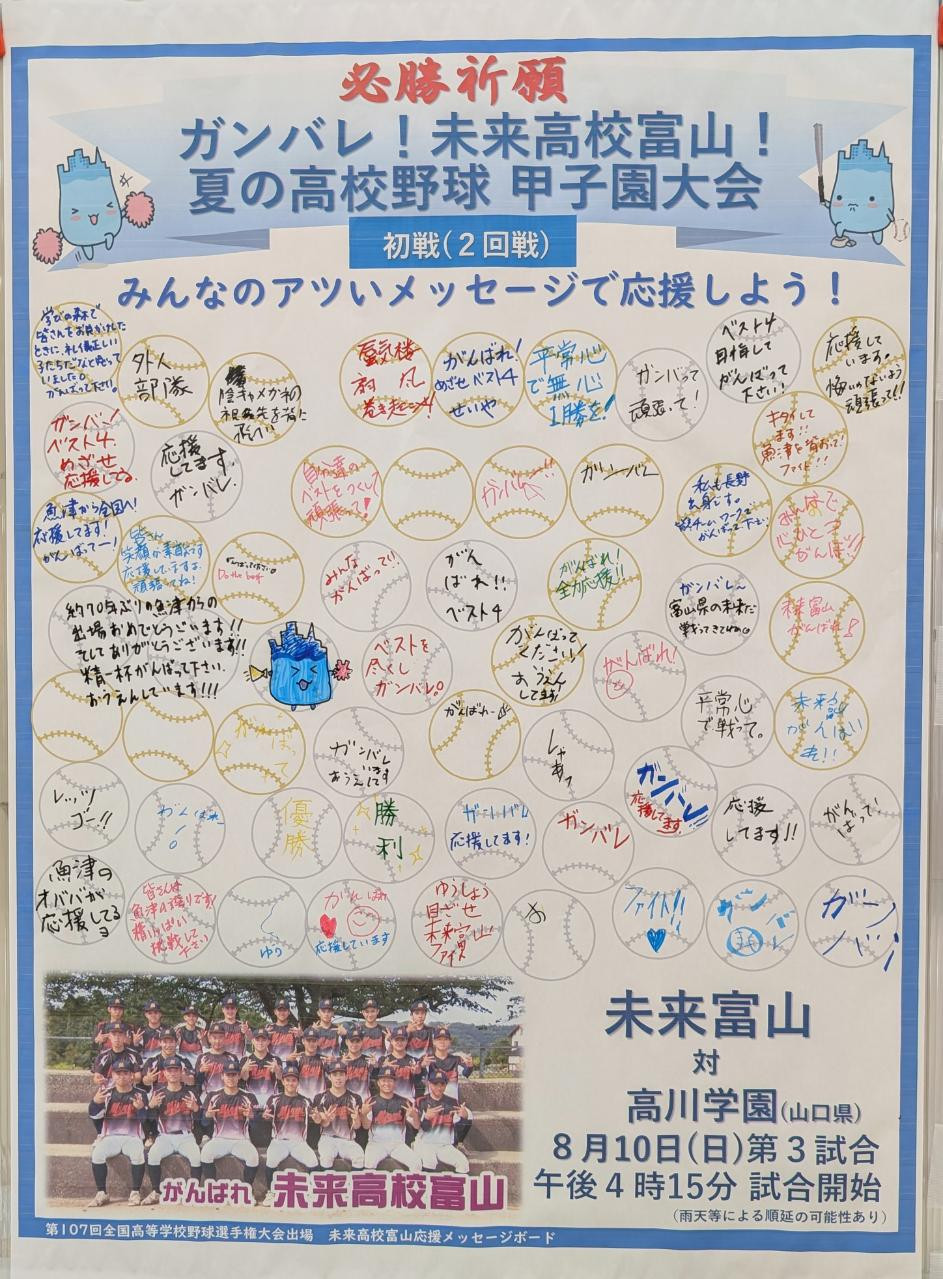 必勝祈願
ガンバレ！未来高校富山！
夏の高校野球 甲子園大会
初戦（２回戦）
みんなのアツいメッセージで応援しよう！
学びの森で
皆さんをお見かけした
ときに、礼儀正しい
子たちだなと思って
いました。
がんばって下さい。
外人
部隊
蜃気楼
旋風
巻き起こせ!
がんばれ!
めざせベスト4
せいや
平常心
で無心
1勝を!
ガンバって
頑張って!
ベスト4
目指して
がんばって
下さい!
応援して
います。
悔いのないよう
頑張って!!
ガンバレ!
ベスト4.
めざせ
応援してる.
応援
してます.
ガンバレ.
自分達の
ベストをつくして
頑張って!
ガンバレ!!
ガンバレ
私も長野
出身です。
がんばって下さい
キタイして
ます!!
魚津を背おって!
ファイト!!
みんなで
心ひとつ
がんばッ!!
魚津から全国へ!
応援してます!
がんばってー!
皆さん
笑顔が素敵です
応援していますよ.
頑張ってね!
がんばってください
Do the best
みんな
がんばって!!
がん
ばれ!!
ベスト4
がんばれ!
全力応援!!
ガンバレ～
富山県の未来だ
戦ってきてね
未来富山
がんばれ!
約70年ぶりの魚津からの
出場おめでとうございます!!
そしてありがとうございます!!
精一杯がんばって下さい.
おうえんしています!!!
ベストを
尽くし
ガンバレ。
がんばって
ください!
おうえん
してます!
がんばれ!
平常心
で戦って。
がんばって
ガンバレ
おうえんしてます
がんばれー
しゃあっ
ガンバレ!!
応援してます
レッツ
ゴー!!
がんばれ
優
勝
勝
利
ガンバレ
応援してます!
ガンバレ
応援
してます!!
がん
ばって!
魚津の
オババが
応援してる
ョ
皆さんは
魚津の誇りです!
精いっぱい
挑戦して
下さい
ゆり
がんばれ
応援しています
ゆうしょう
目ざせ
未来富山
ファイス
お
ファイト!!
ガンバレ
がんばれ 未来高校富山
未来富山
対
高川学園（山口県）
８月10日（日）第３試合
午後４時15分 試合開始
（雨天等による順延の可能性あり）
第107回全国高等学校野球選手権大会出場　未来高校富山応援メッセージボード